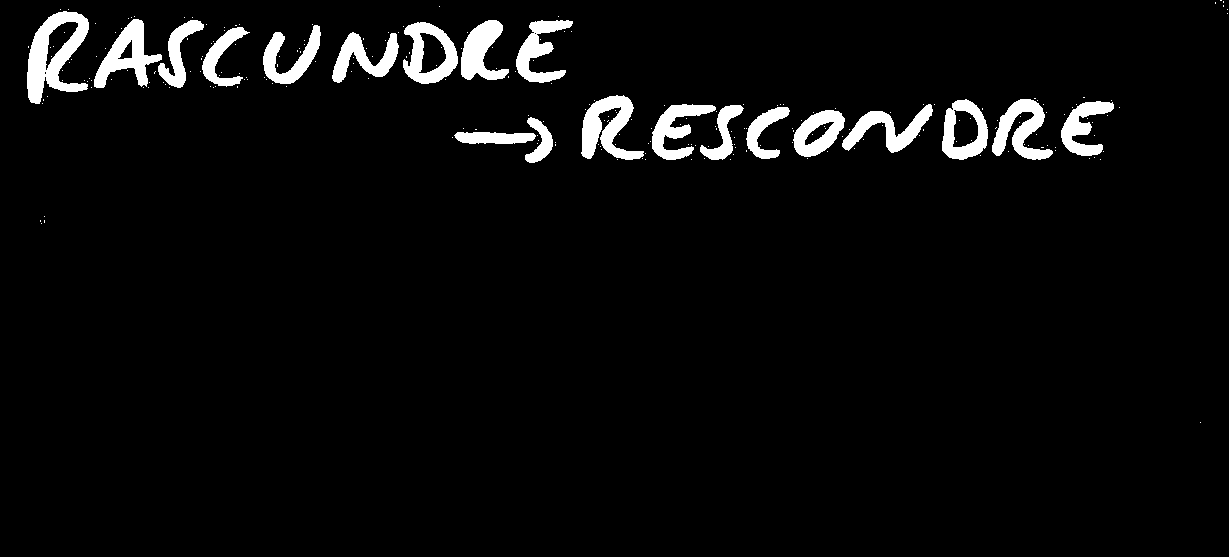 RASCUNDRE
→ RESCONDRE